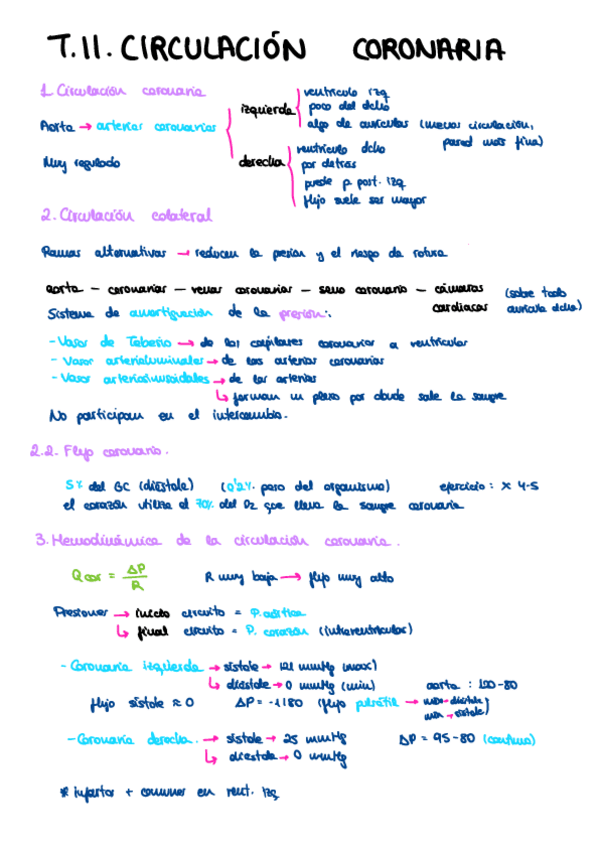 T.11. CIRCULACIÓN CORONARIA
1. Circulación coronaria
Aorta → arterias coronarias
izquierda
ventrículo izq
poco del dcho
algo de aurículas (menos circulación, pared más fina)
Muy regulado
derecha
ventrículo dcho
por detrás
puede p. post. izq
flujo suele ser mayor
2. Circulación colateral
Ramas alternativas → reducen la presión y el riesgo de rotura
aorta - coronarias - venas coronarias - seno coronario - cámaras cardiacas (sobre todo aurícula dcha)
Sistema de amortiguación de la presión:
- Vasos de Tebesio → de los capilares coronarios a ventricular
- Vasos arterioluminales → de las arterias coronarias
- Vasos arteriosinusoidales → de las arterias
↳ forman un plexo por donde sale la sangre
No participan en el intercambio.
2.2. Flujo coronario.
5% del GC (diástole) (0'2% peso del organismo) ejercicio: x 4-5
el corazón utiliza el 70% del O2 que lleva la sangre coronaria
3. Hemodinámica de la circulación coronaria.
Q cor = ΔP / R R muy baja → flujo muy alto
Presiones → inicio circuito = P. aórtica
↳ final circuito = P. corazón (intraventricular)
- Coronaria izquierda → sístole → 121 mmHg (max)
↳ diástole → 0 mmHg (min) aorta: 120-80
flujo sístole ≈ 0 ΔP = -1 | 80 (flujo pulsátil → max-diástole, min-sístole)
- Coronaria derecha. → sístole → 25 mmHg ΔP = 95-80 (continuo)
↳ diástole → 0 mmHg
* infartos + comunes en vent. izq